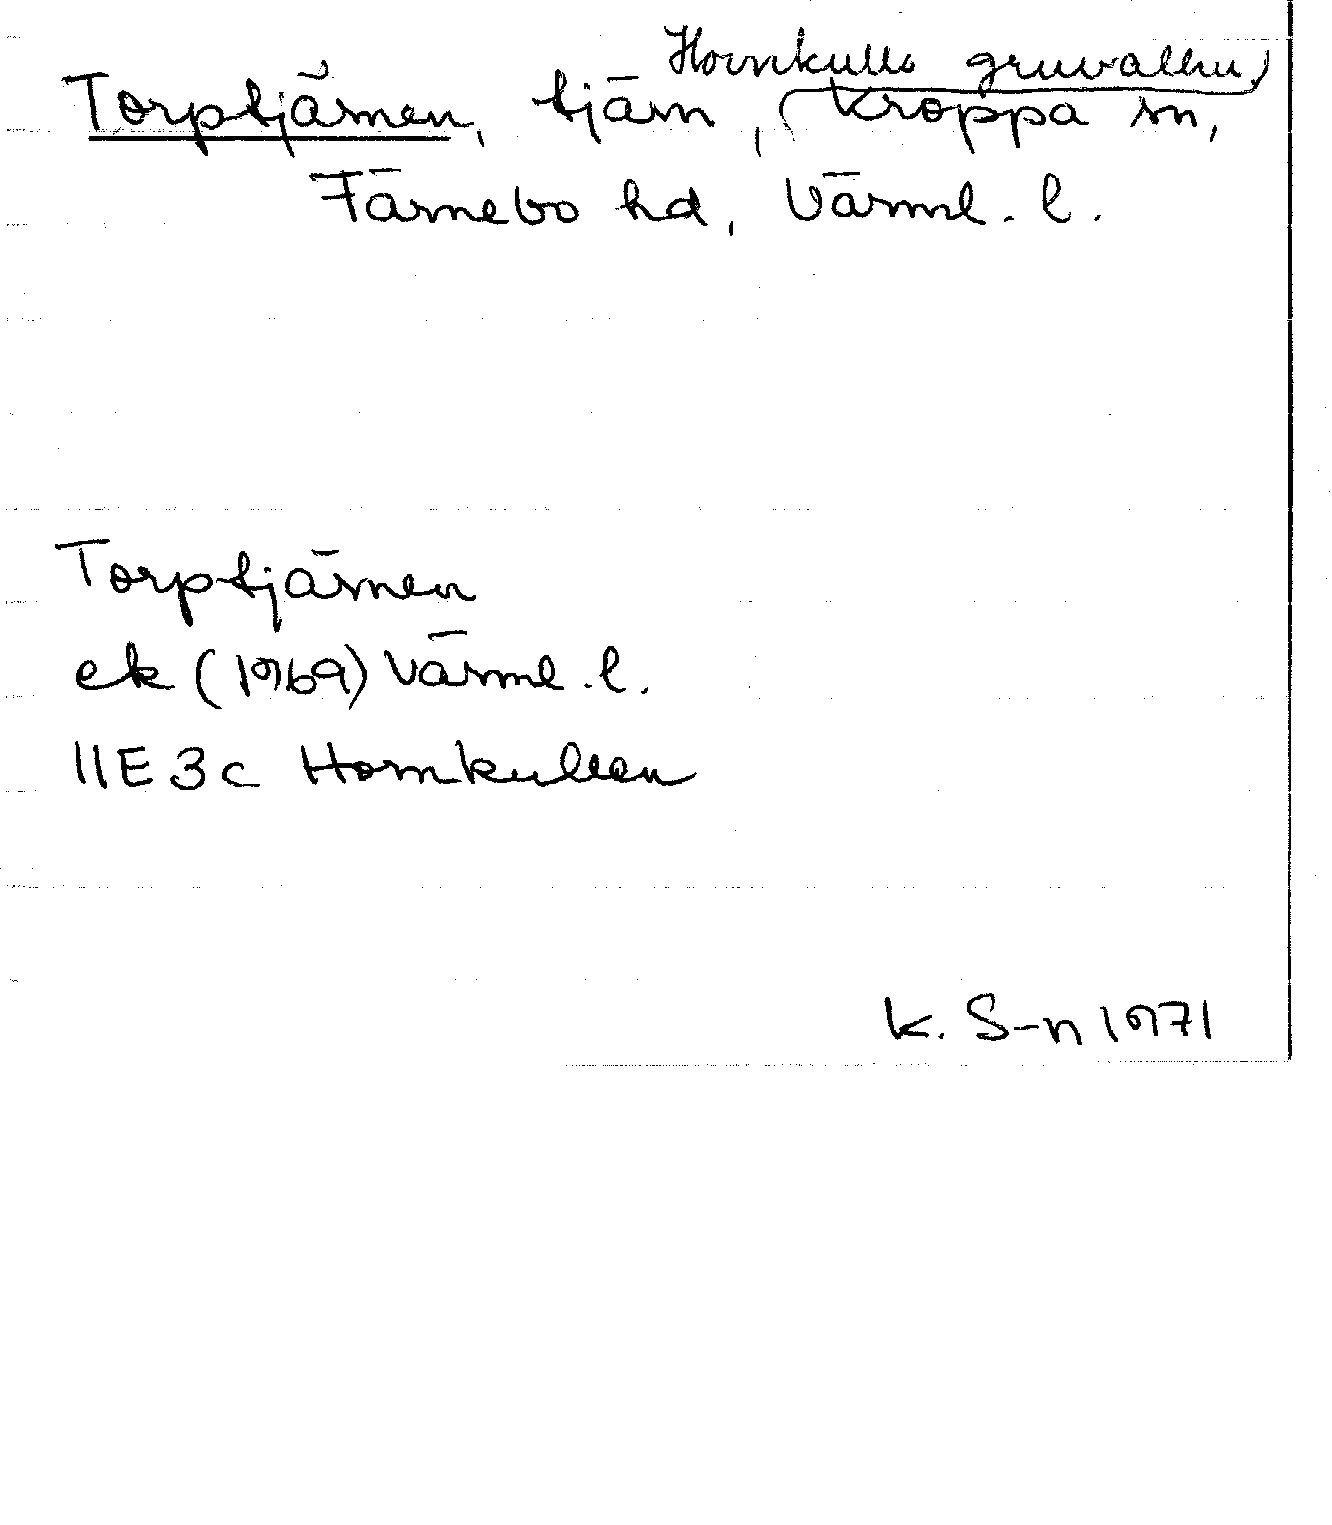 Hornkulls gruvallm,
Torptjärnen, tjärn, Kroppa sn,
Färnebo hd, Värml. l.
Torptjärnen
ek (1969) Värml. l.
11E 3c Hornkullen
K. S-n 1971